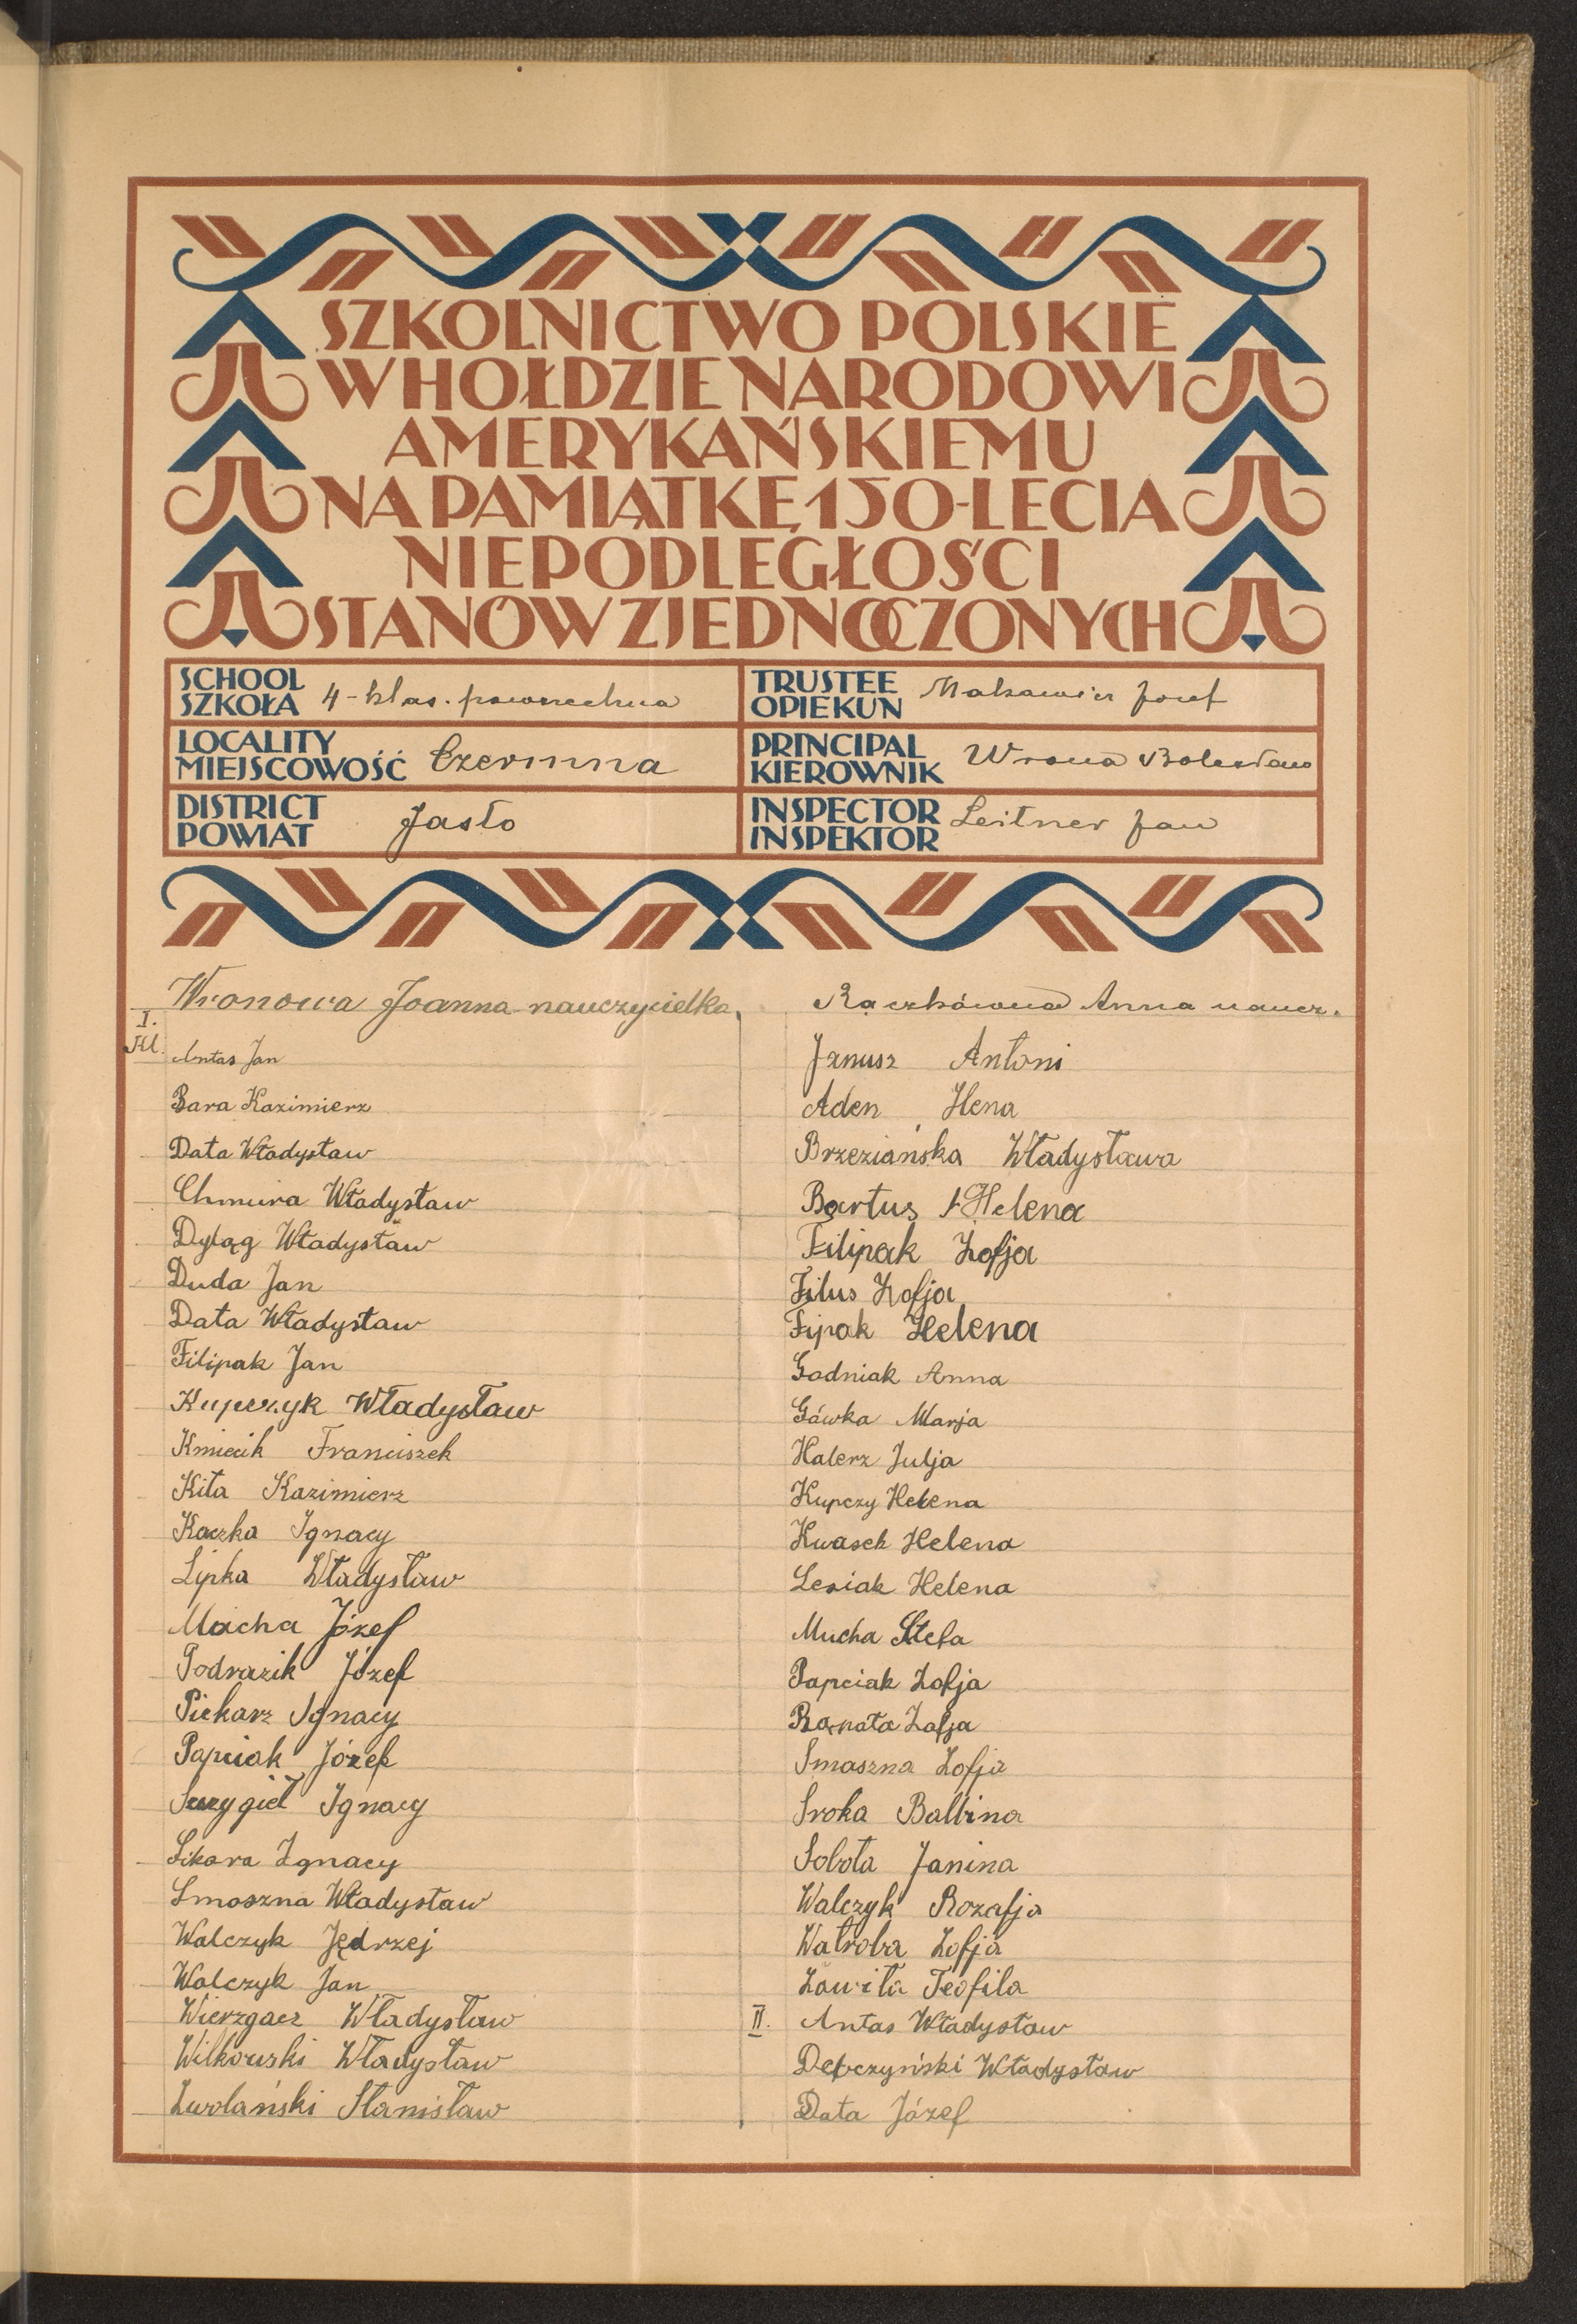 SZKOLNICTWO POLSKIE
W HOŁDZIE NARODOWI
AMERYKAŃSKIEMU
NA PAMIĄTKĘ 150-LECIA
NIEPODLEGŁOŚCI
STANÓW ZJEDNOCZONYCH
SCHOOL
SZKOŁA 4-klas. powszechna
TRUSTEE
OPIEKUN Józef
LOCALITY
MIEJSCOWOŚĆ Czermna
PRINCIPAL
KIEROWNIK Wrona Bolesław
DISTRICT
POWIAT Jasło
INSPECTOR
INSPEKTOR Leitner Jan
Wronowa Joanna nauczycielka,
I.
Kl.
Antas Jan
Bara Kazimierz
Data Władysław
Chmura Władysław
Dyląg Władysław
Duda Jan
Data Władysław
Filipak Jan
Kupczyk Władysław
Kmiecik Franciszek
Kita Kazimierz
Kaczka Ignacy
Lipka Władysław
Macha Józef
Podrazik Józef
Piekarz Ignacy
Papciak Józef
Szczygieł Ignacy
Sikora Ignacy
Smoszna Władysław
Walczyk Jędrzej
Walczyk Jan
Wierzgacz Władysław
Wilkowski Władysław
Zwolański Stanisław
Rączkówna Anna naucz.
Janusz Antoni
Aden Hena
Brzeziańska Władysława
Bartus Helena
Filipak Zofja
Filus Zofja
Fipak Helena
Godniak Anna
Gówka Marja
Halerz Julja
Kupczy Helena
Kwasek Helena
Lesiak Helena
Mucha Stefa
Papciak Zofja
Zofja
Smaszna Zofja
Sroka Balbina
Sobota Janina
Walczyk Rozalja
Watroba Zofja
Zawiła Teofila
II. Antas Władysław
Debczyński Władysław
Data Józef